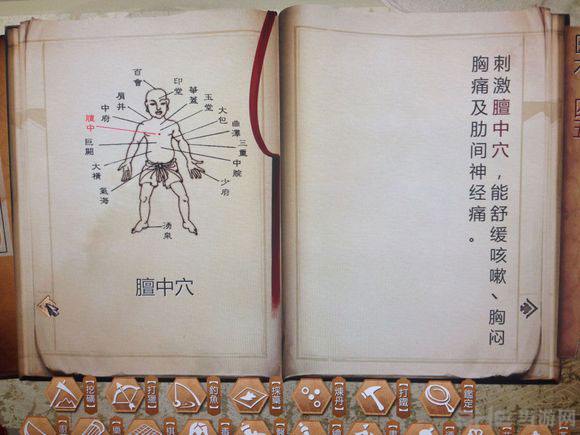 百會
印堂
華蓋
玉堂
大包
曲澤
三重
中脘
少府
肩井
中府
膻中
巨闕
大橫
氣海
湧泉
膻中穴
刺激膻中穴，能舒缓咳嗽、胸闷
胸痛及肋间神经痛。
【挖礦】
【打獵】
【釣魚】
【採藥】
【煉丹】
【打鐵】
【鑑定】